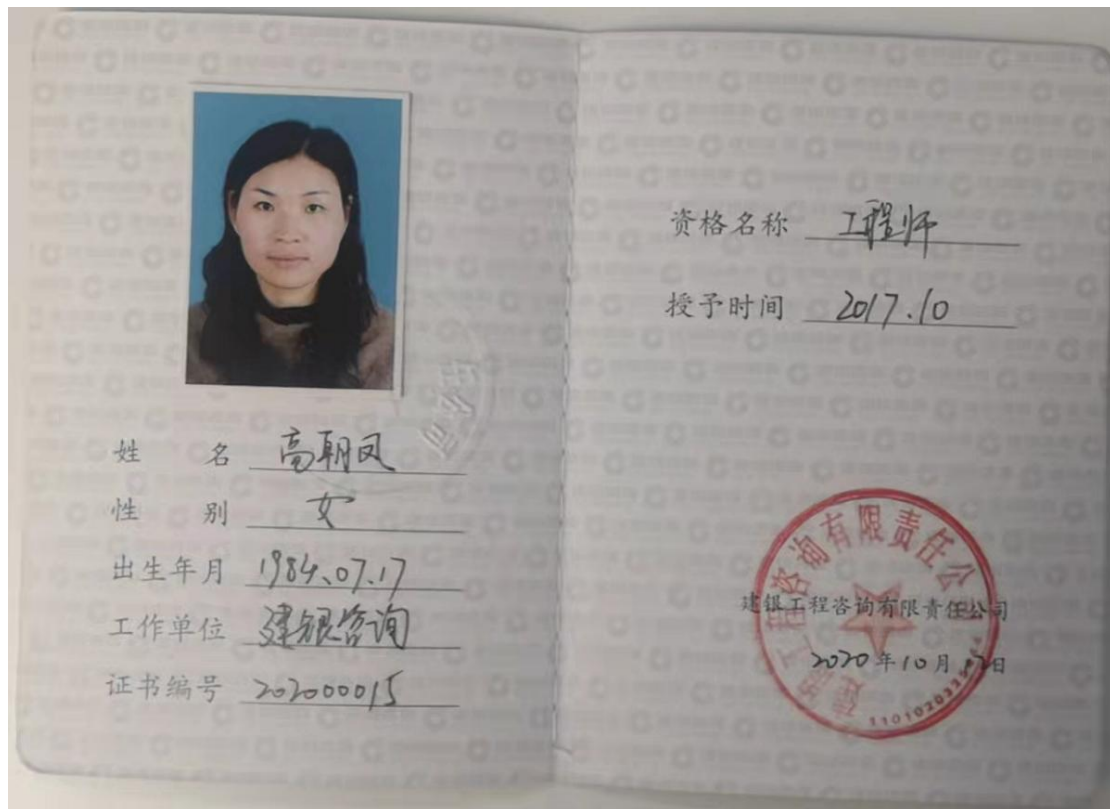 姓 名 高朝凤
性 别 女
出生年月 1984.07.17
工作单位 建银咨询
证书编号 202000015
资格名称 工程师
授予时间 2017.10
建银工程咨询有限责任公司
建银工程咨询有限责任公司
2020年10月 日